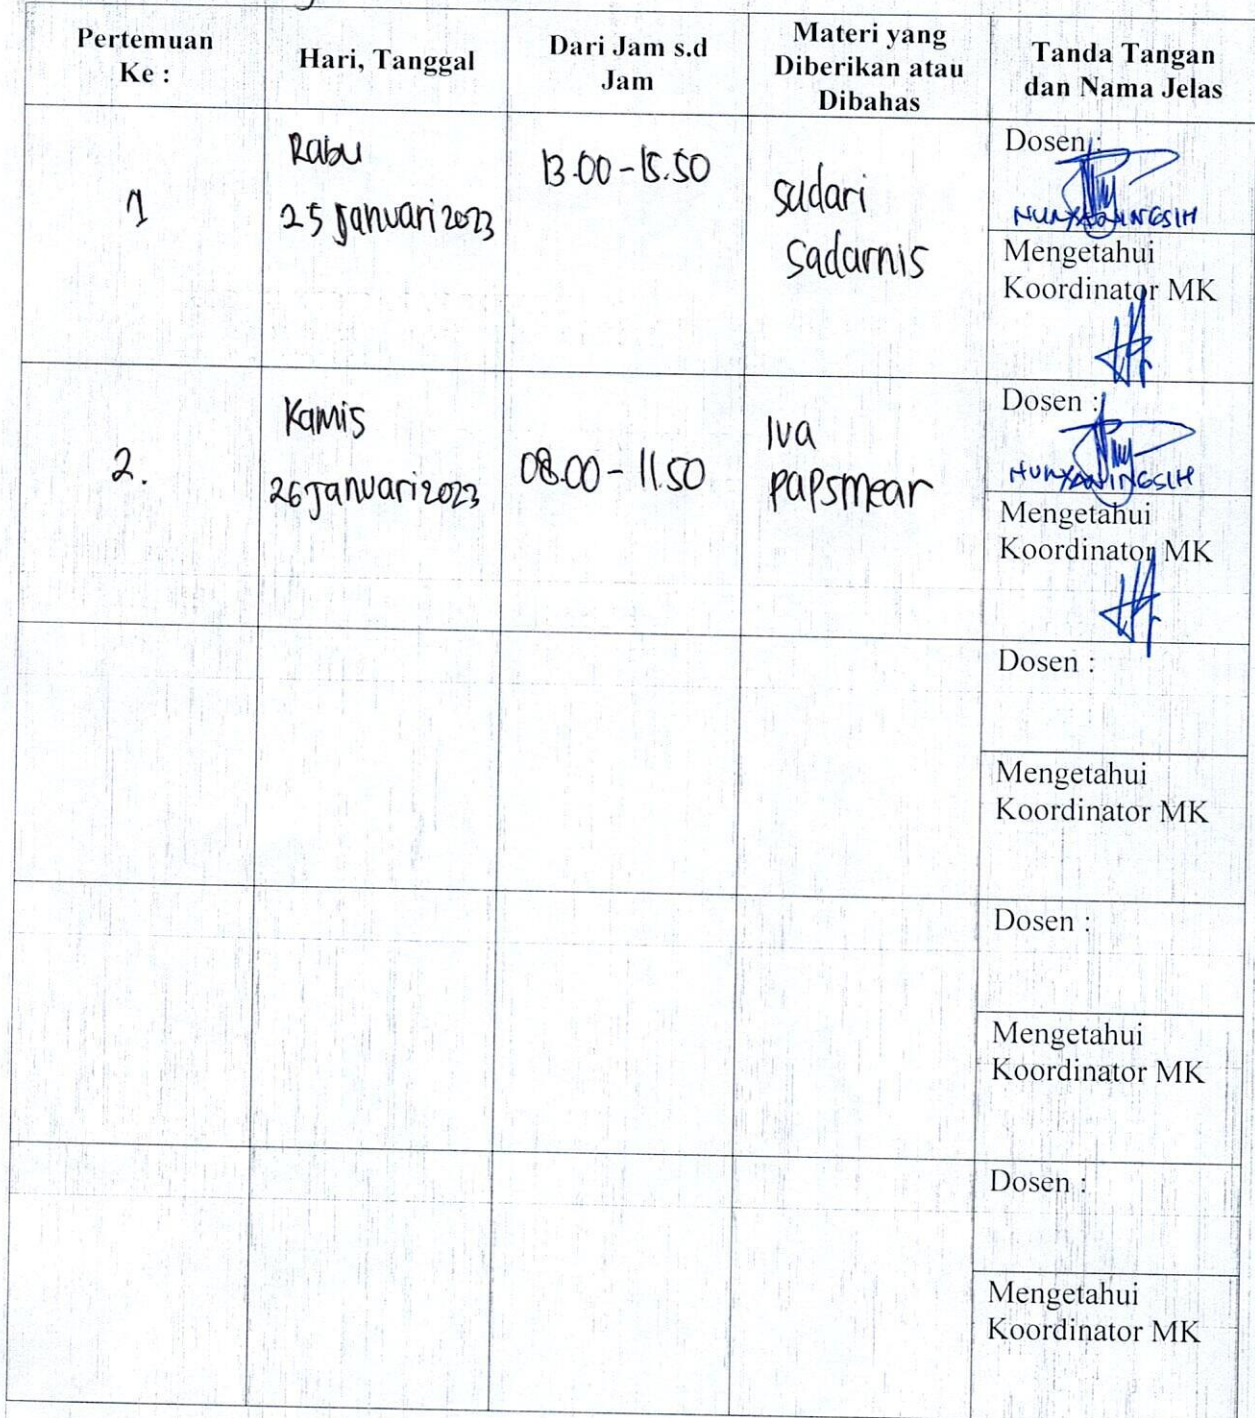 Pertemuan
Ke :
Hari, Tanggal
Dari Jam s.d
Jam
Materi yang
Diberikan atau
Dibahas
Tanda Tangan
dan Nama Jelas
1
Rabu
25 Januari 2023
13.00 - 15.50
sudari
sadarnis
Dosen :
NURYANINGSIH
Mengetahui
Koordinator MK
2.
Kamis
26 Januari 2023
08.00 - 11.50
Iva
papsmear
Dosen :
NURYANINGSIH
Mengetahui
Koordinator MK
Dosen :
Mengetahui
Koordinator MK
Dosen :
Mengetahui
Koordinator MK
Dosen :
Mengetahui
Koordinator MK